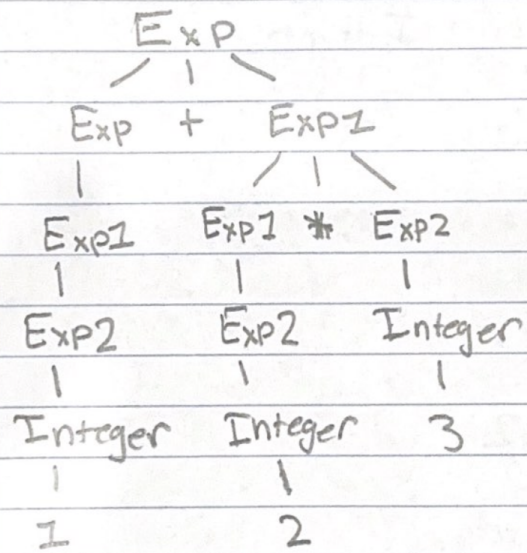 Exp
Exp + Exp1
Exp1 Exp1 * Exp2
Exp2 Exp2 Integer
Integer Integer 3
1 2